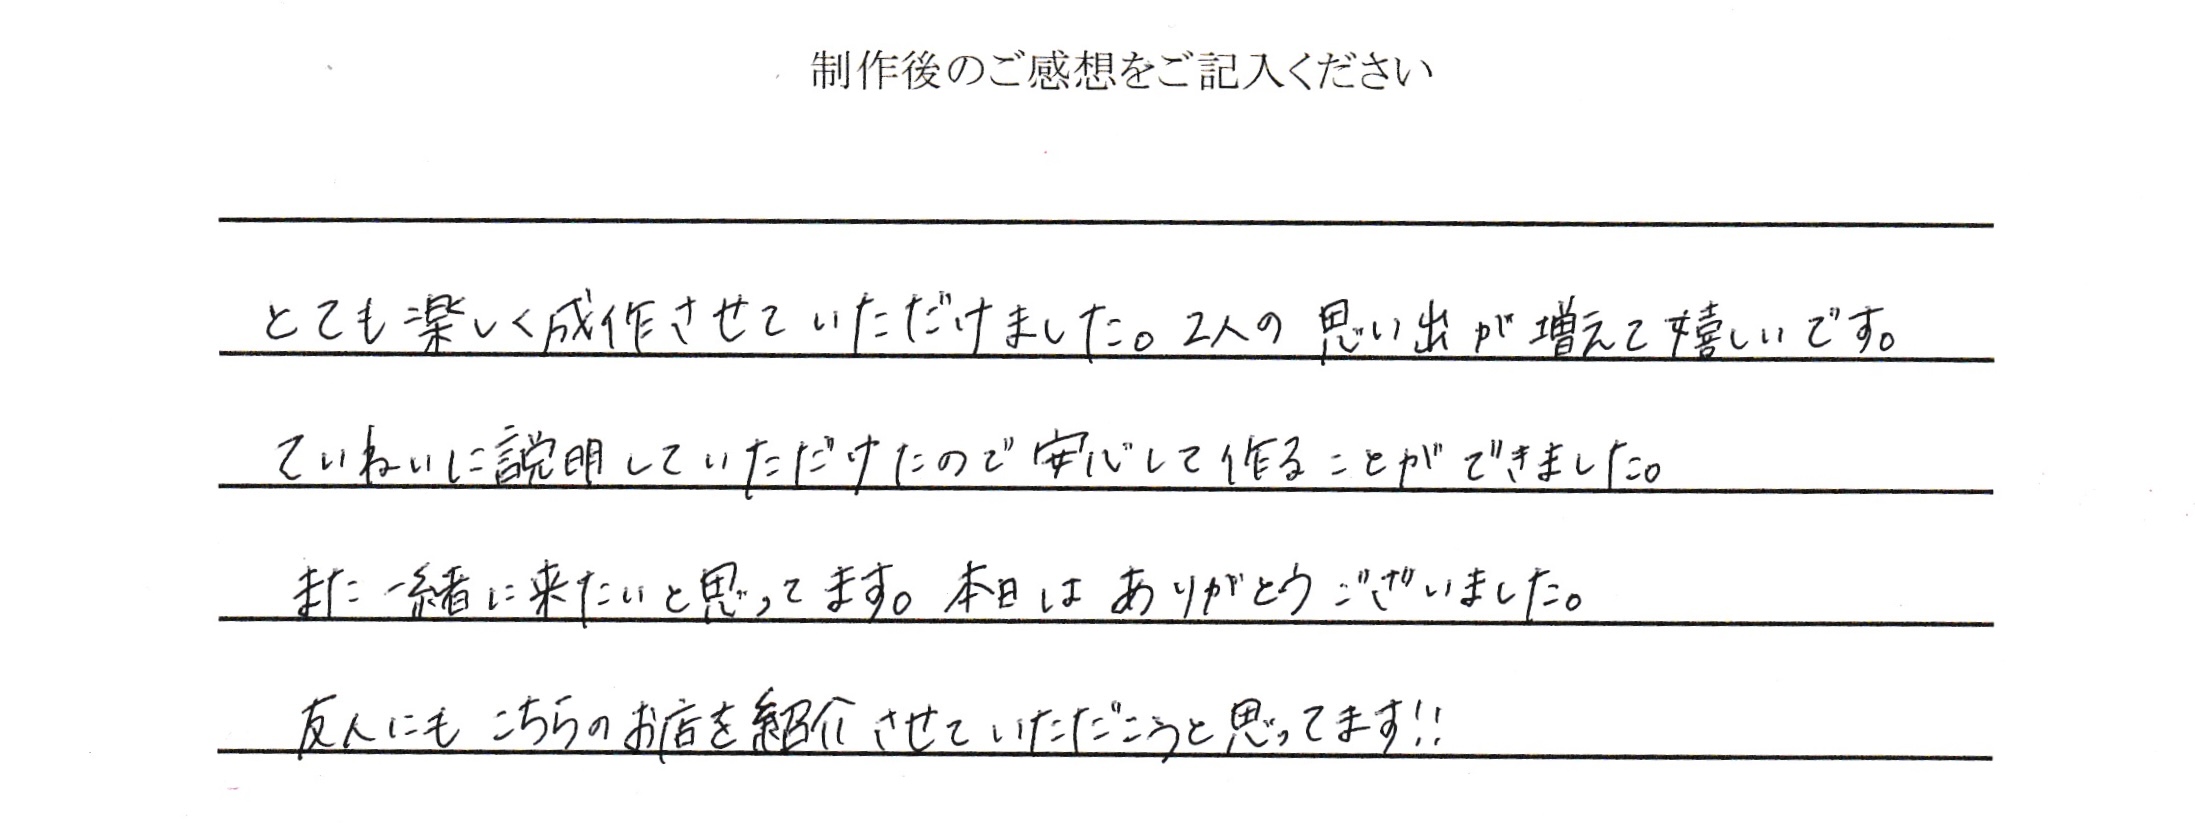 制作後のご感想をご記入ください
とても楽しく成作させていただけました。2人の思い出が増えて嬉しいです。
ていねいに説明していただけたので安心して作ることができました。
また一緒に来たいと思ってます。本日はありがとうございました。
友人にもこちらのお店を紹介させていただこうと思ってます!!